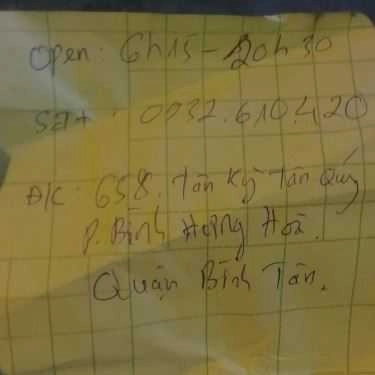 Open: 6h15 - 20h30
SĐT: 0932.610.420
ĐC: 658. Tân Kỳ Tân Quý
P. Bình Hưng Hoà.
Quận Bình Tân.